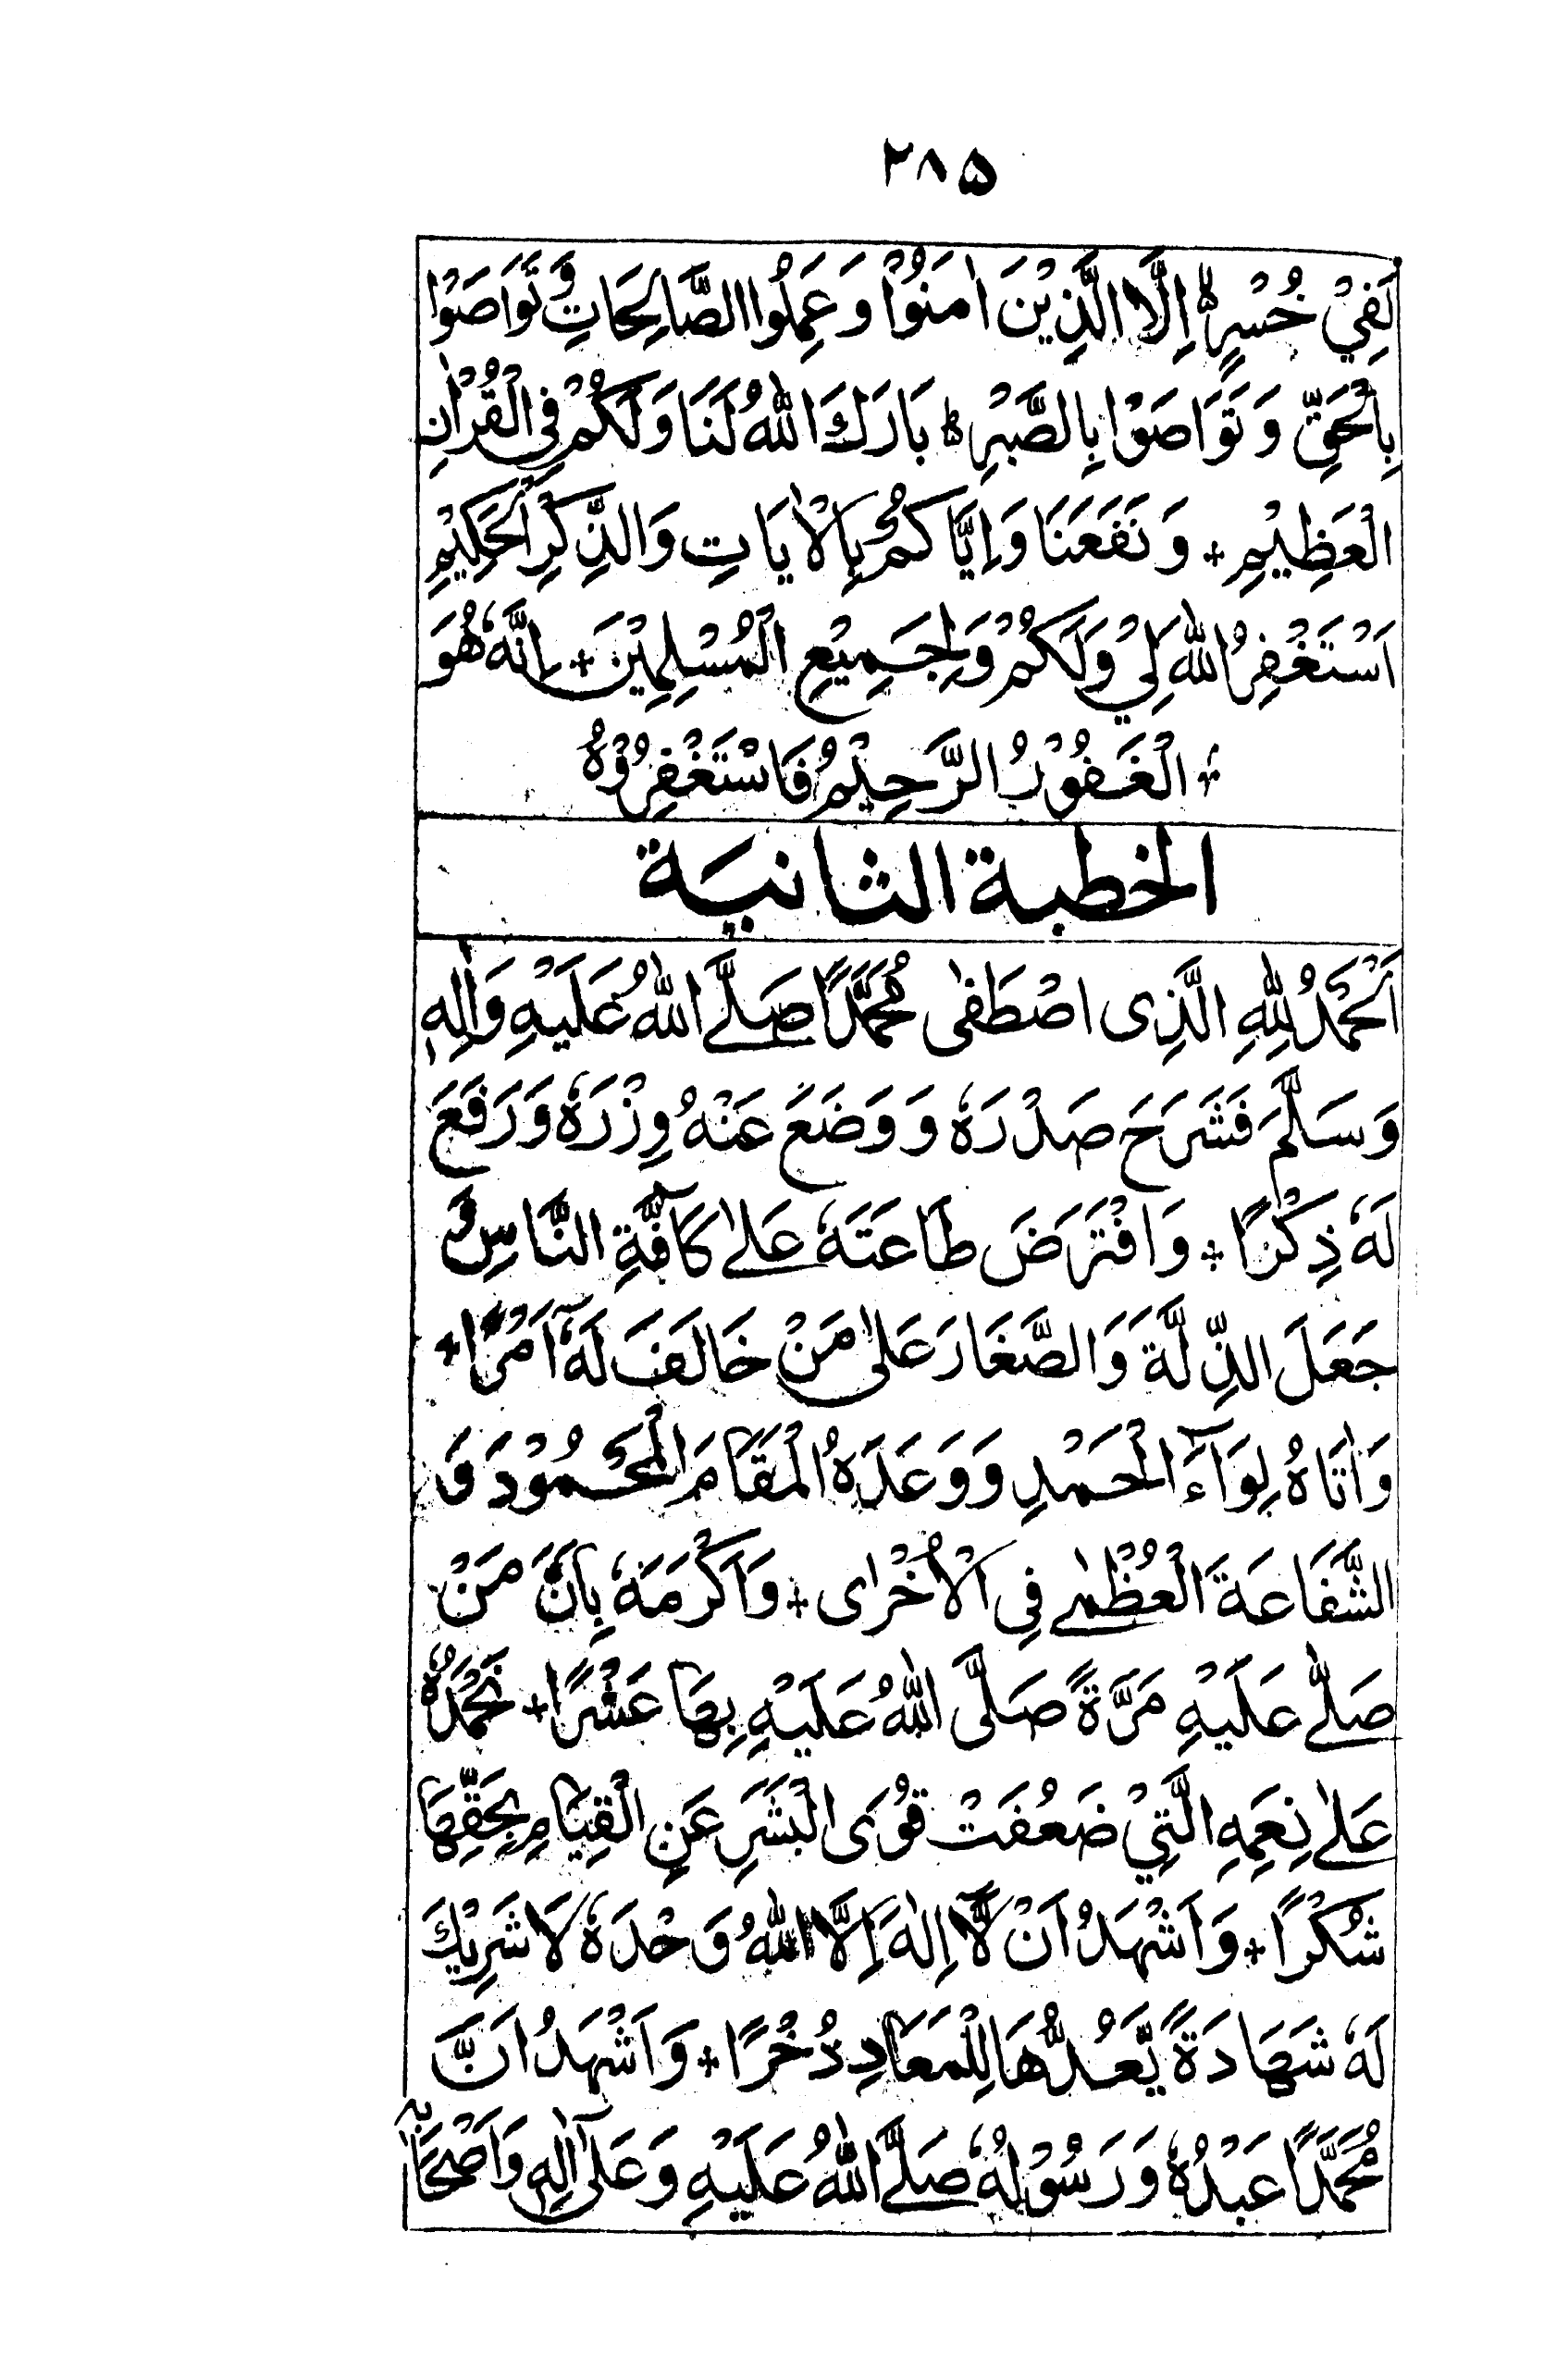 ۲۸۵
لَفِيْ خُسْرٍ ۙ اِلَّا الَّذِيْنَ اٰمَنُوْا وَعَمِلُوا الصَّالِحَاتِ وَتَوَاصَوْا
بِالْحَقِّ وَتَوَاصَوْا بِالصَّبْرِ ؕ بَارَكَ اللّٰهُ لَنَا وَلَكُمْ فِي الْقُرْاٰنِ
الْعَظِيْمِ + وَنَفَعَنَا وَاِيَّاكُمْ بِالْاٰيَاتِ وَالذِّكْرِ الْحَكِيْمِ
اَسْتَغْفِرُ اللّٰهَ لِيْ وَلَكُمْ وَلِجَمِيْعِ الْمُسْلِمِيْنَ + اِنَّهٗ هُوَ
+ الْغَفُوْرُ الرَّحِيْمُ فَاسْتَغْفِرُوْهُ
الخطبة الثانية
اَلْحَمْدُ لِلّٰهِ الَّذِى اصْطَفٰى مُحَمَّدًا صَلَّے اللّٰهُ عَلَيْهِ وَاٰلِهٖ
وَسَلَّمَ فَشَرَحَ صَدْرَهٗ وَوَضَعَ عَنْهُ وِزْرَهٗ وَرَفَعَ
لَهٗ ذِكْرًا + وَافْتَرَضَ طَاعَتَهٗ عَلےٰ كَآفَّةِ النَّاسِ وَ
جَعَلَ الذِّلَّةَ وَالصَّغَارَ عَلٰى مَنْ خَالَفَ لَهٗٓ اَمْرًا +
وَاٰتَاهُ لِوَآءَ الْحَمْدِ وَوَعَدَهُ الْمَقَامَ الْمَحْمُوْدَ وَ
الشَّفَاعَةَ الْعُظْمٰے فِي الْاُخْرٰى + وَاَكْرَمَهٗ بِاَنَّ مَنْ
صَلّٰے عَلَيْهِ مَرَّةً صَلَّى اللّٰهُ عَلَيْهِ بِهَا عَشْرًا + نَحْمَدُهٗ
عَلےٰ نِعَمِهِ الَّتِيْ ضَعُفَتْ قُوَى الْبَشَرِ عَنِ الْقِيَامِ بِحَقِّهَا
شُكْرًا + وَاَشْهَدُ اَنْ لَّآ اِلٰهَ اِلَّا اللّٰهُ وَحْدَهٗ لَا شَرِيْكَ
لَهٗ شَهَادَةً يَّعُدُّهَا لِلْمَعَادِ ذُخْرًا + وَاَشْهَدُ اَنَّ
مُحَمَّدًا عَبْدُهٗ وَرَسُوْلُهٗ صَلَّے اللّٰهُ عَلَيْهِ وَعَلٰٓى اٰلِهٖ وَاَصْحَابِهٖ